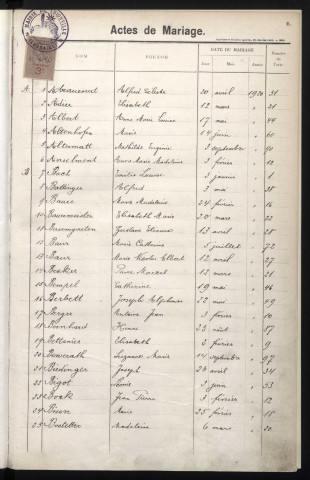 Actes de Mariage.
NOM PRÉNOM DATE DU MARIAGE Numéro de l'acte
Jour Mois Année
A 1 Alfred Céleste 20 avril 1920 31
2 Adier Elisabeth 12 mars " 21
3 Albert Anne Marie Louise 17 mai " 44
4 Altenhofen Marie 14 juin " 60
5 Altermatt Mathilde Eugénie 3 septembre " 90
6 Anselment Anne Marie Madeleine 3 février " 12
B 7 Bach Emilie Louise 3 janvier " 1
8 Ballinger Alfred 3 mai " 38
9 Bauer Marie Madeleine 24 février " 16
10 Elisabeth Marie 20 mars " 23
11 Baumgarten Gustave Etienne 13 avril " 28
12 Baur Marie Catherine 5 juillet " 72
13 Baur Marie Charles Albert 12 avril " 27
14 Becker Pierre Marcel 12 mars " 21
15 Bempel Catherine 19 mai " 46
16 Berbett Joseph Alphonse 22 mai " 49
17 Berger Antoine Jean 3 février " 10
18 Bernhard 23 août " 87
19 Elisabeth 2 février " 9
20 Suzanne Marie 14 septembre " 97
21 Joseph 24 avril " 34
22 Bigot Louis 3 juin " 53
23 Bock Jean Pierre 3 février " 12
24 Marie 25 février " 18
25 Madeleine 6 mars " 20